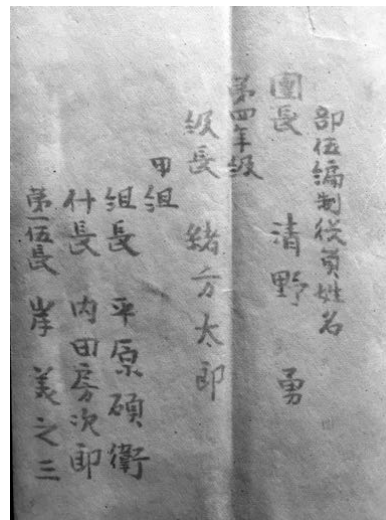 部伍編制役員姓名
團長 清野 勇
第四年級
級長 緒方太郎
甲組
組長 平原碩衛
什長 内田房次郎
第一伍長 岸 義之三